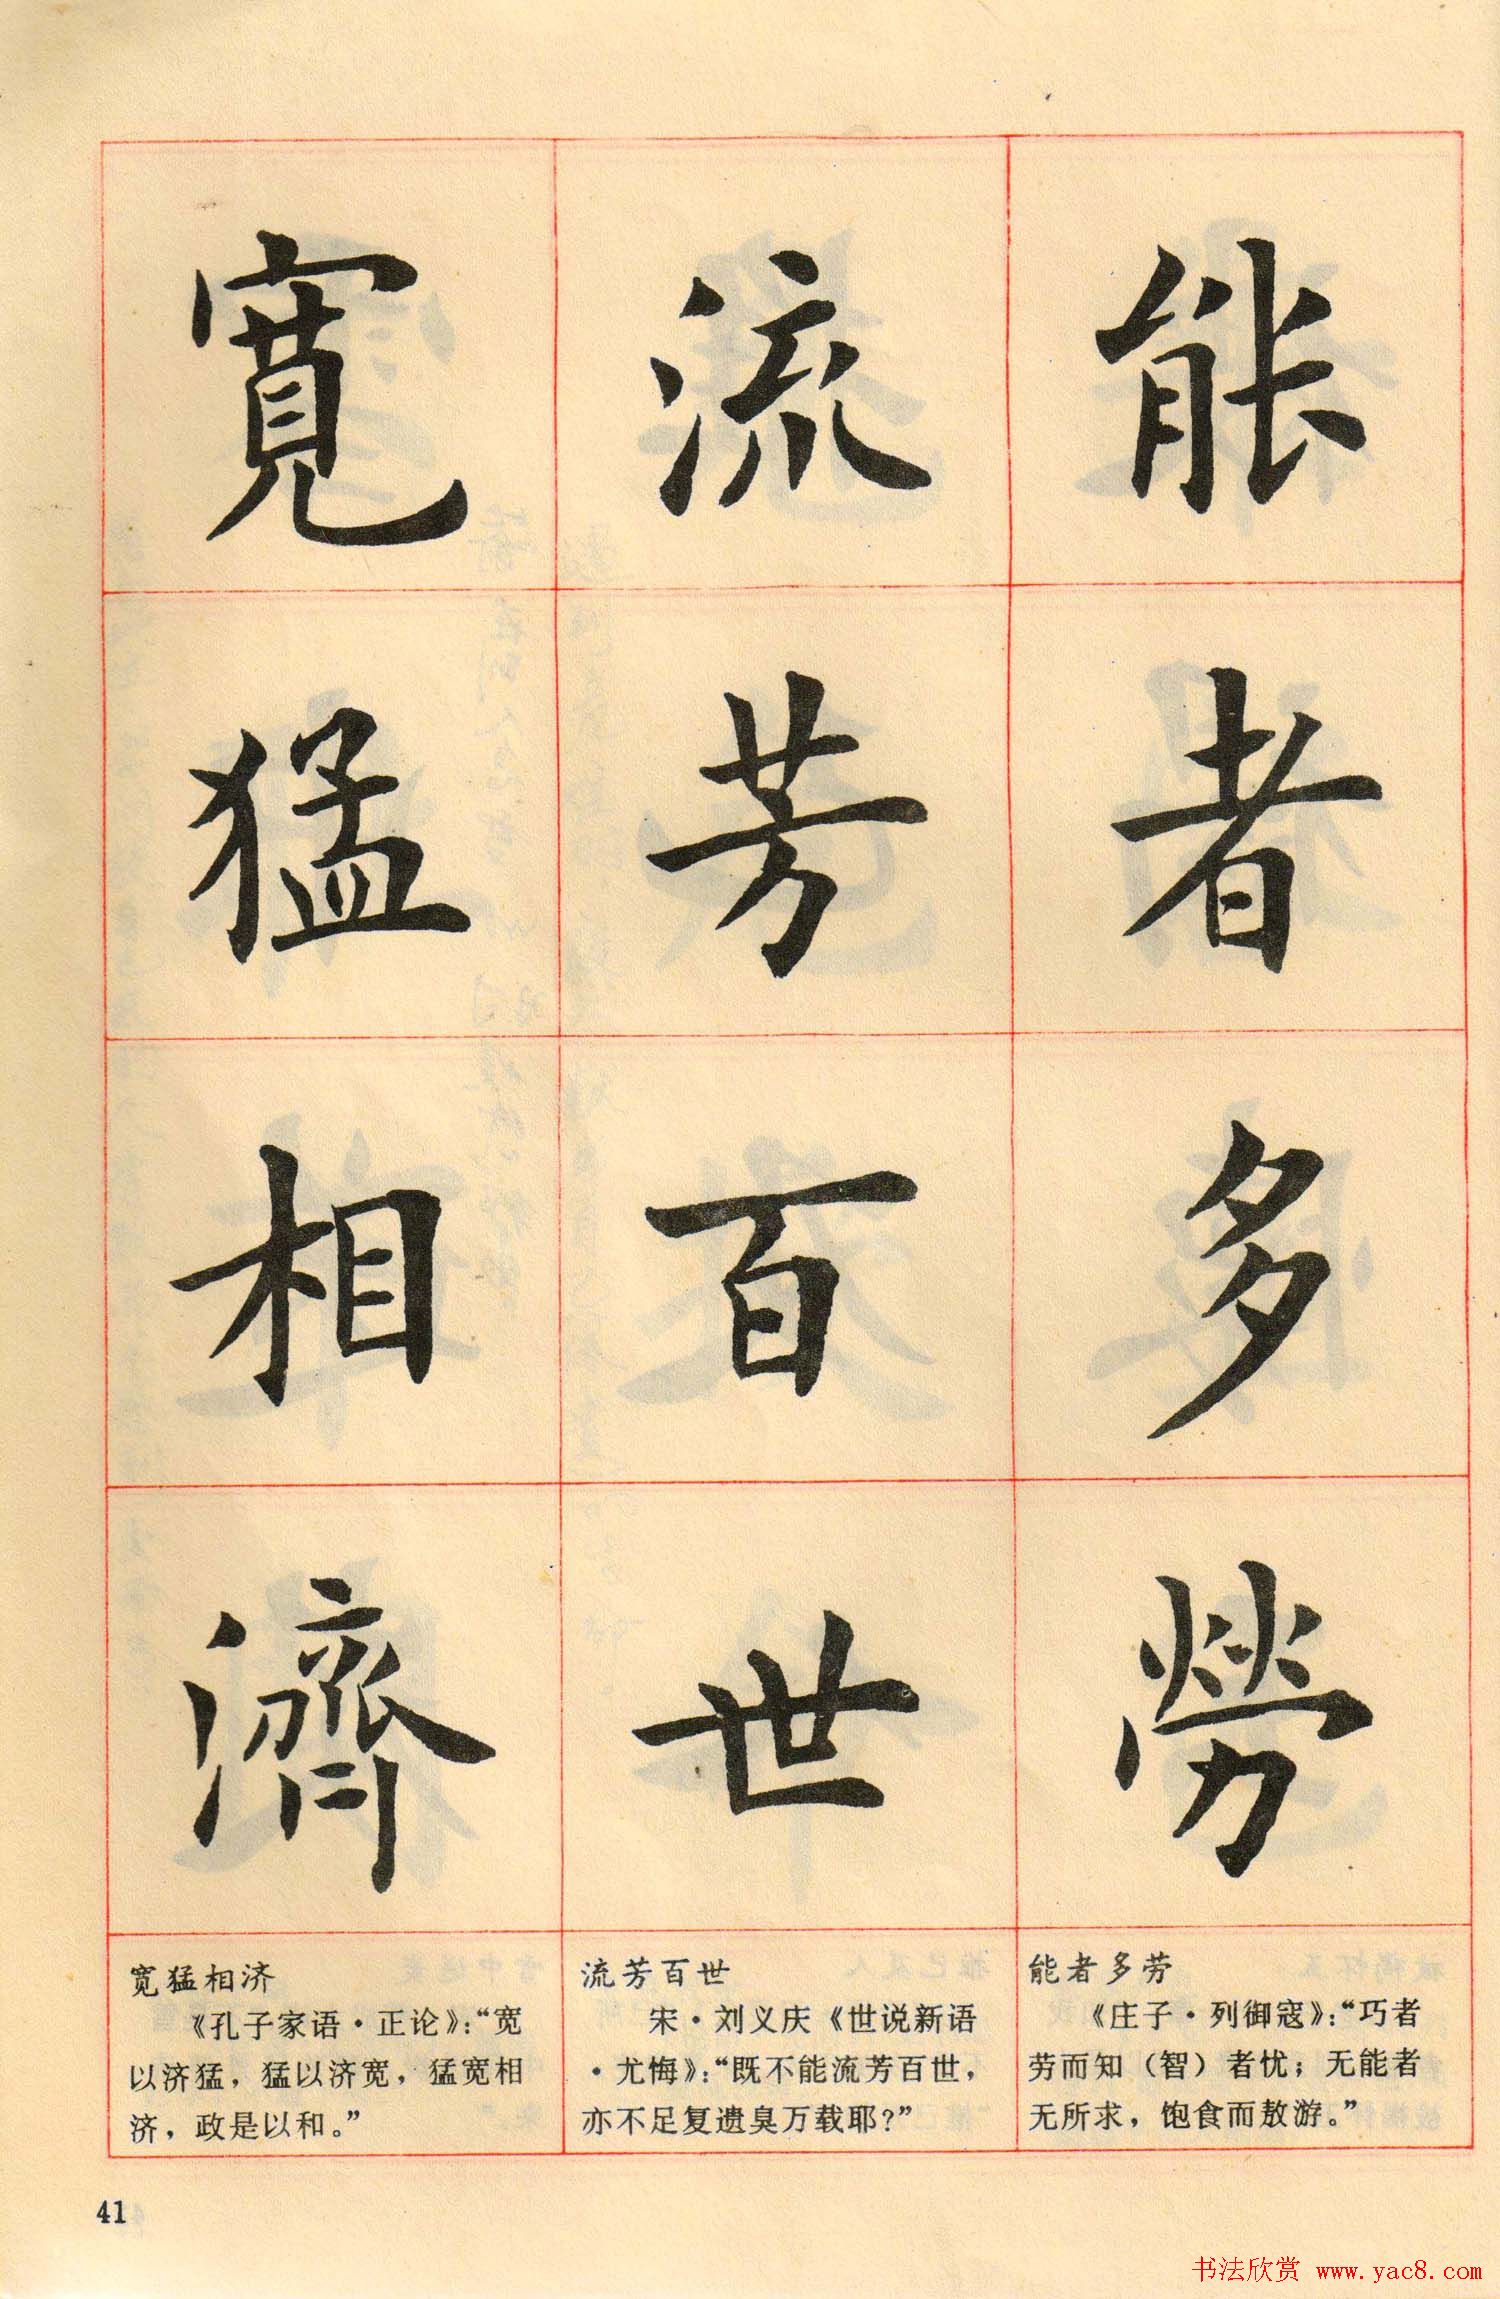 能者多勞
流芳百世
寬猛相濟
能者多劳
《庄子·列御寇》：“巧者
劳而知（智）者忧；无能者
无所求，饱食而敖游。”
流芳百世
宋·刘义庆《世说新语
·尤悔》：“既不能流芳百世，
亦不足复遗臭万载耶？”
宽猛相济
《孔子家语·正论》：“宽
以济猛，猛以济宽，猛宽相
济，政是以和。”
41
书法欣赏 www.yac8.com